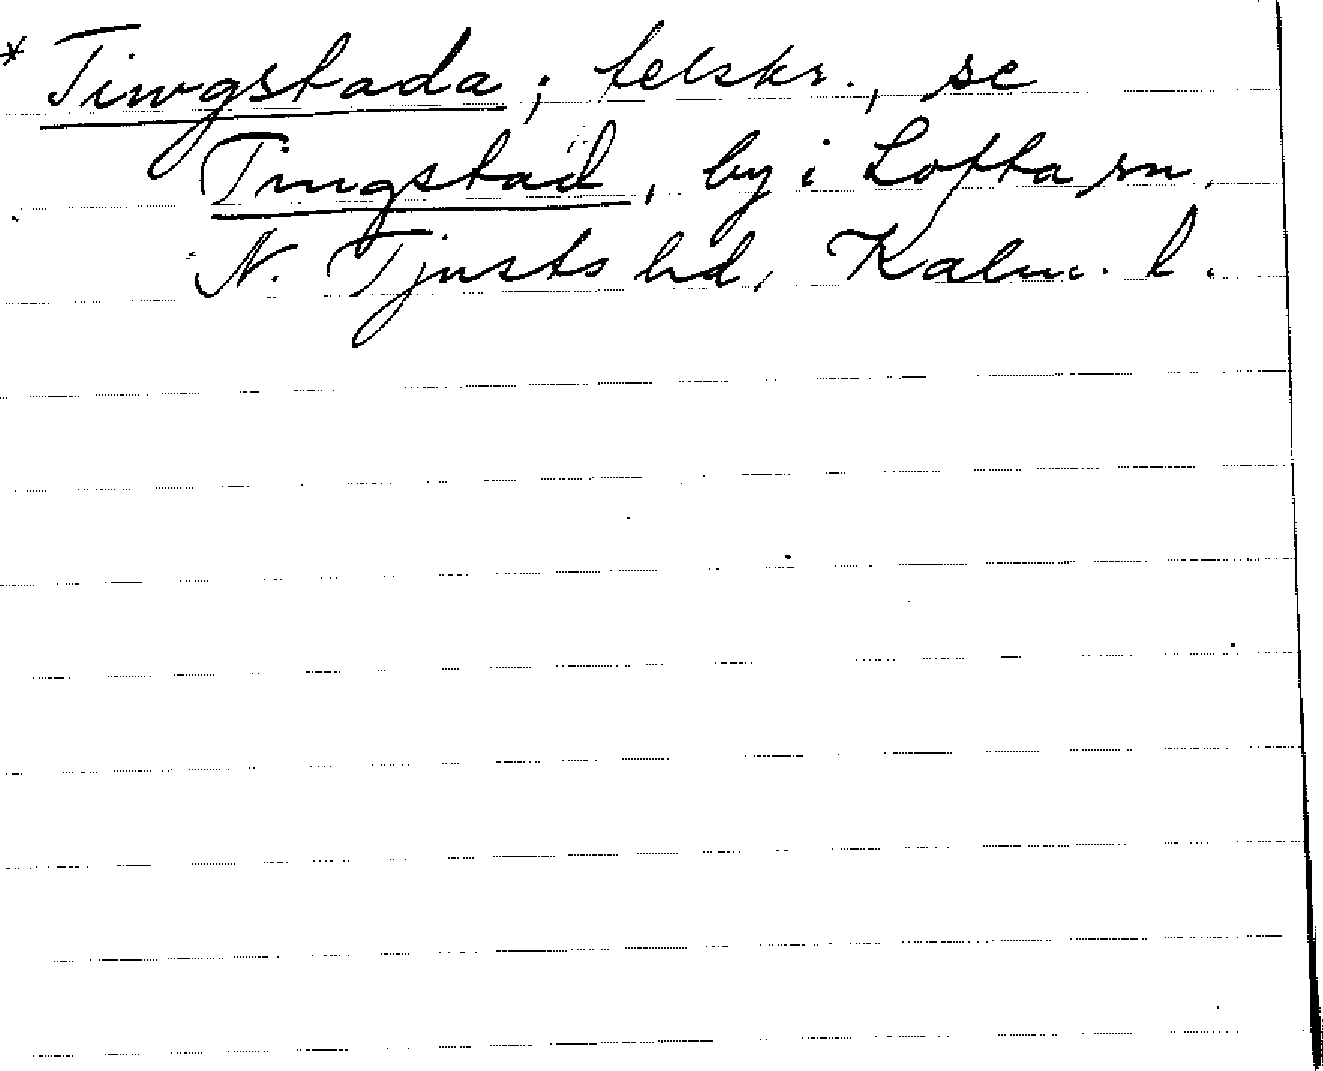 * Tingstada; felskr., se
Tingstad, by i Lofta sn,
N. Tjusts hd, Kalm. l.